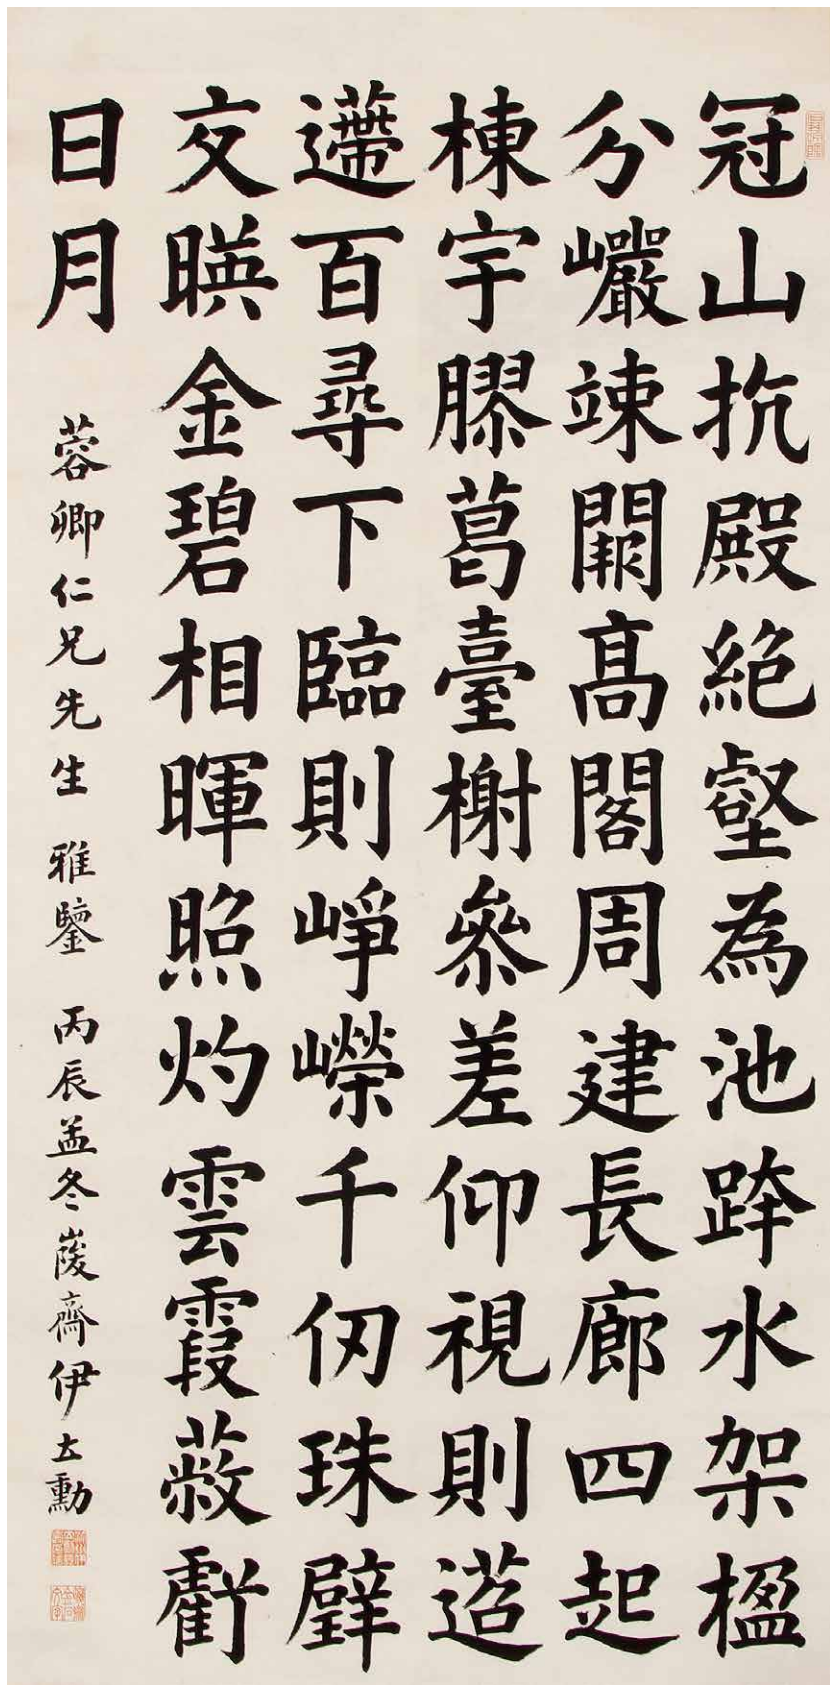 冠山抗殿絕壑為池跨水架楹
分巖竦闕高閣周建長廊四起
棟宇膠葛臺榭參差仰視則迢
遰百尋下臨則崢嶸千仞珠璧
交暎金碧相暉照灼雲霞蔽虧
日月
蓉卿仁兄先生 雅鑒 丙辰孟冬 峻齋伊立勳